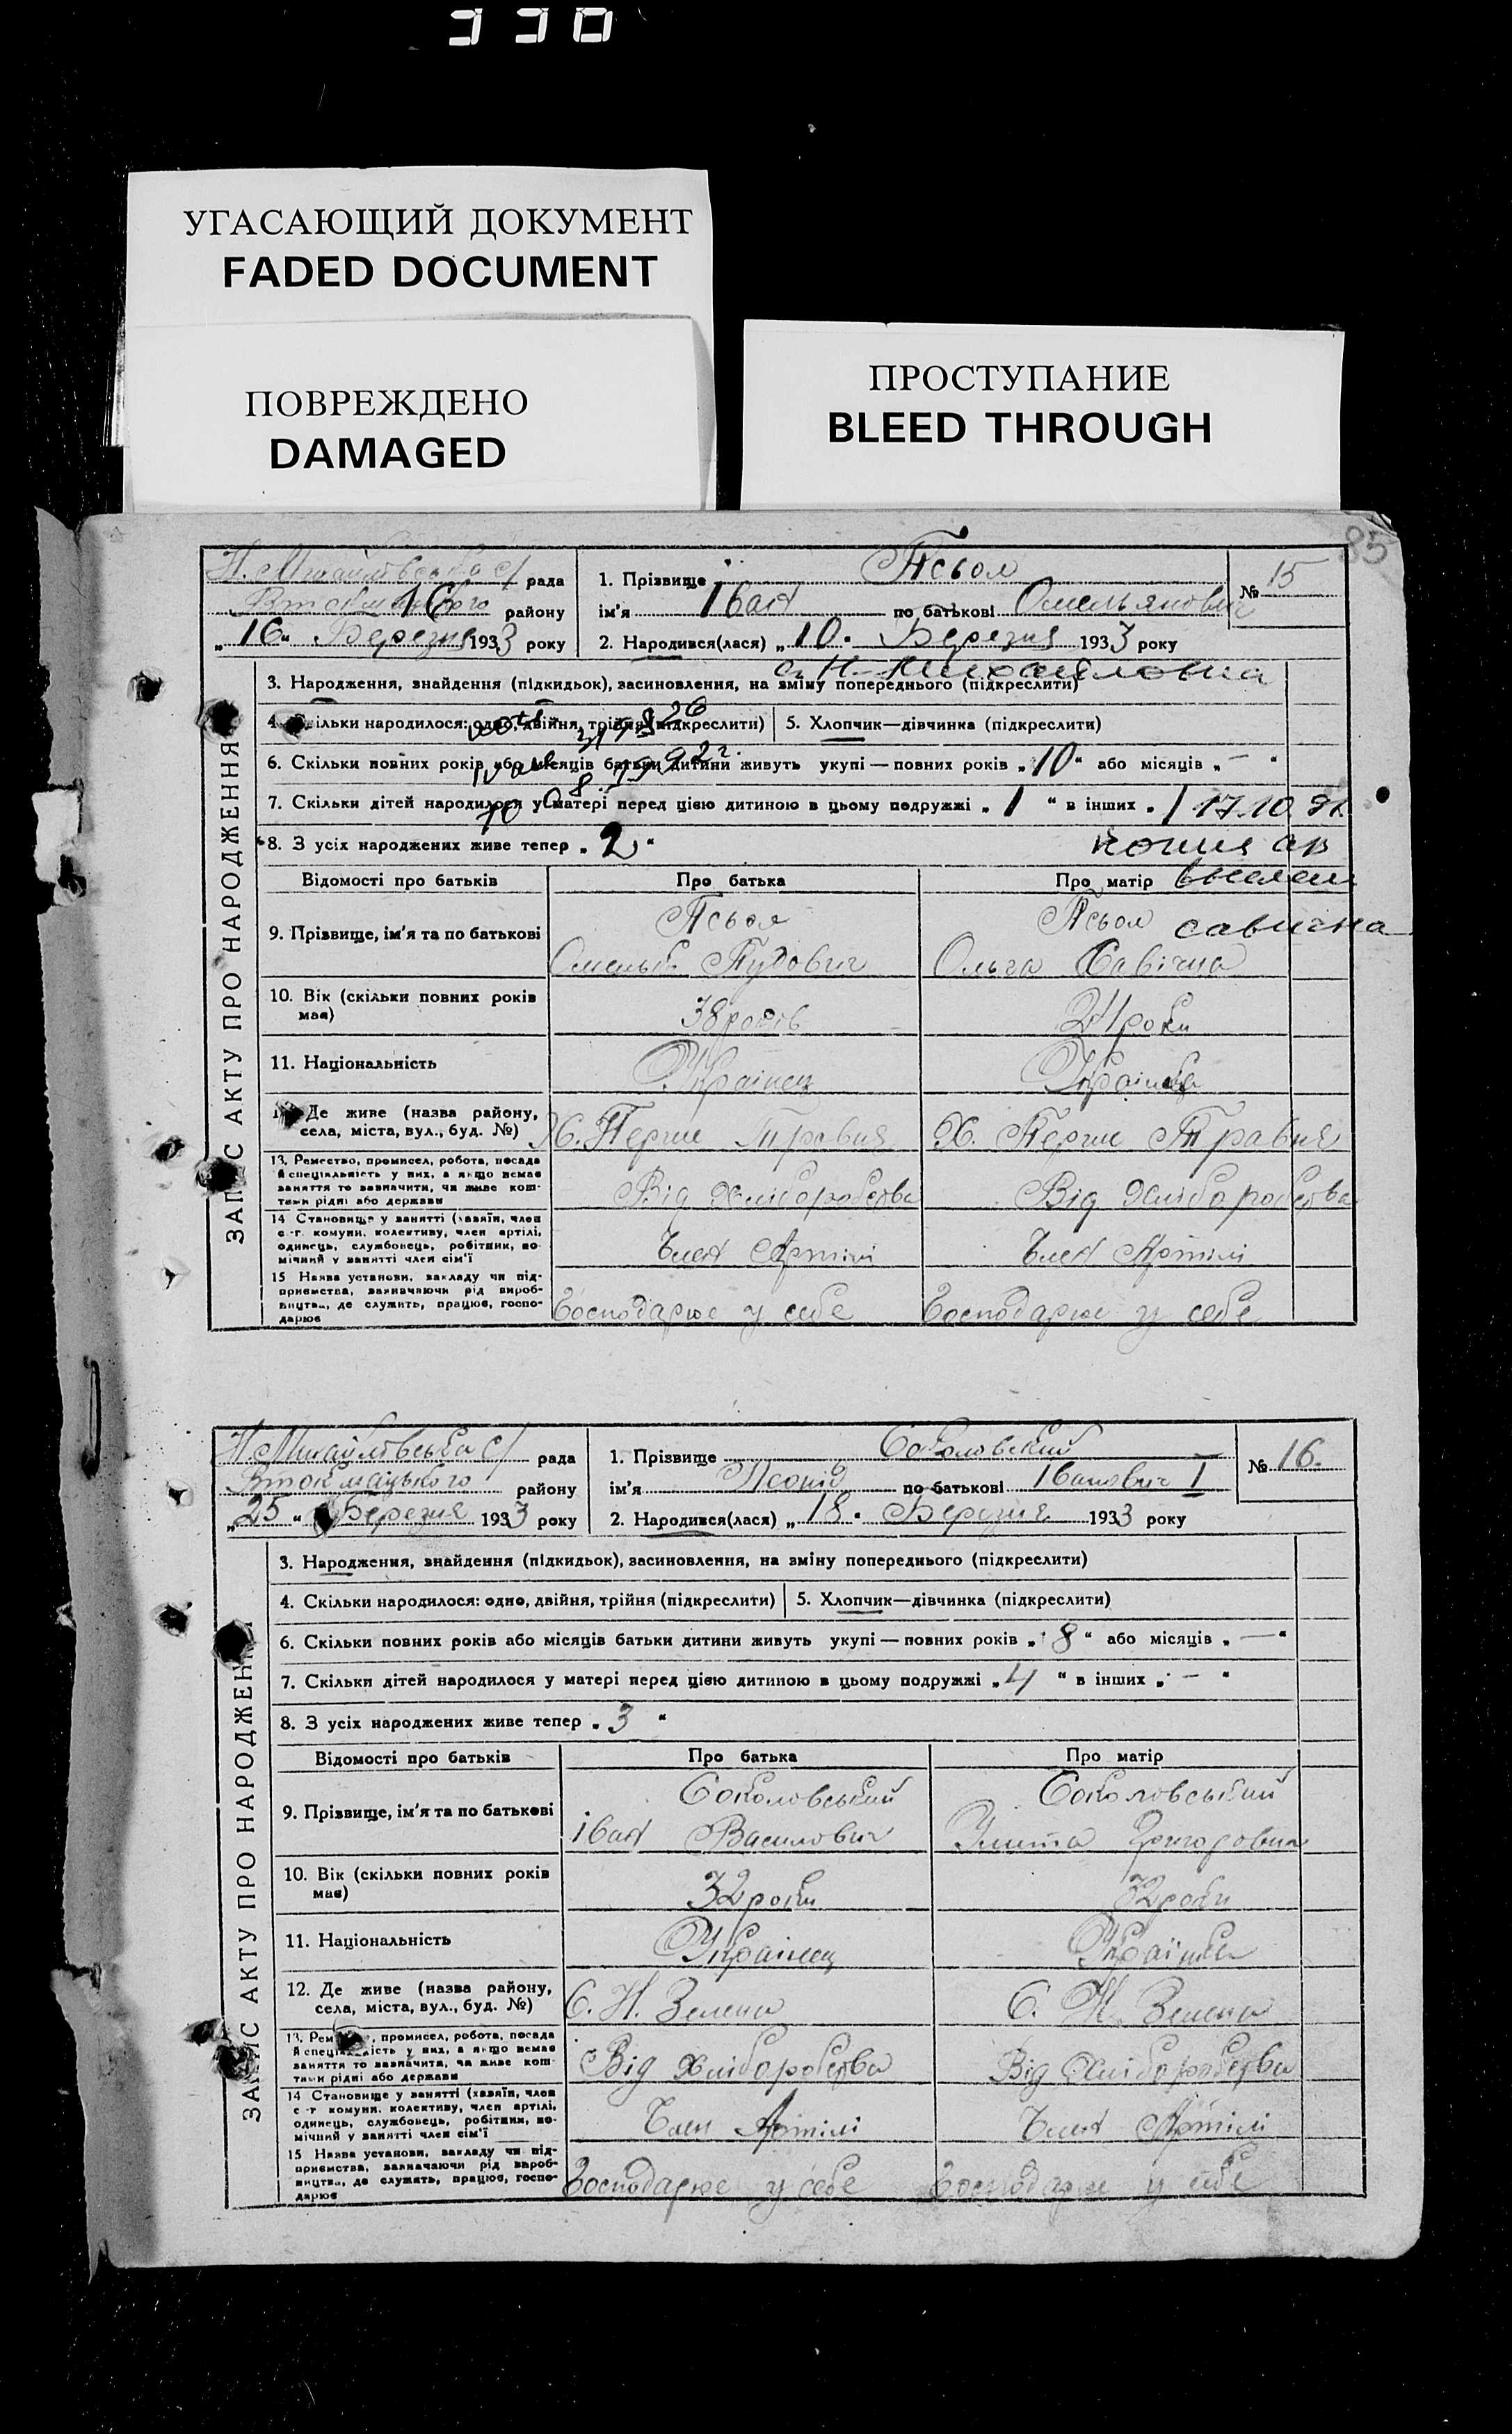 330
УГАСАЮЩИЙ ДОКУМЕНТ
FADED DOCUMENT
ПОВРЕЖДЕНО
DAMAGED
ПРОСТУПАНИЕ
BLEED THROUGH
85
ЗАПИС АКТУ ПРО НАРОДЖЕННЯ
Н. Михайлівська с/ рада
району
„16“ Березня 1933 року
1. Прізвище Псьол
ім'я Іван по батькові Омельянович
№ 15
2. Народився(лася) „10“ Березня 1933 року
с. Н-Михайловка
3. Народження, знайдення (підкидьок), засиновлення, на зміну попереднього (підкреслити)
4. Скільки народилося: одно, двійня, трійня (підкреслити) 5. Хлопчик—дівчинка (підкреслити)
6. Скільки повних років або місяців батьки дитини живуть укупі — повних років „10“ або місяців „—“
7. Скільки дітей народилося у матері перед цією дитиною в цьому подружжі „1“ в інших „1 17.10.
8. З усіх народжених живе тепер „2“
копия
Відомості про батьків Про батька Про матір
9. Прізвище, ім'я та по батькові
Псьол Псьол савична
Омельян Пудович Ольга Савічна
10. Вік (скільки повних років має) 38 років роки
11. Національність Українец Українка
12. Де живе (назва району, села, міста, вул., буд. №) Х. Перше Травня Х. Перше Травня
13. Ремество, промисел, робота, посада
й спеціяльність у них, а якщо немає
заняття то зазначити, чи живе кош-
тами рідні або держави
Від Хліборобства Від Хліборобства
14 Становище у занятті (хазяїн, член
с.-г. комуни, колективу, член артілі,
одинець, службовець, робітник, по-
мічний у занятті член сім'ї
Член Артілі Член Артілі
15 Назва установи, закладу чи під-
приємства, зазначаючи рід вироб-
ництва, де служить, працює, госпо-
дарює
Господарює у себе Господарює у себе
ЗАПИС АКТУ ПРО НАРОДЖЕННЯ
Н. Михайлівська с/ рада
Втокмацького району
„25“ Березня 1933 року
1. Прізвище Соколовский
ім'я Леонід по батькові Іванович I
№ 16.
2. Народився(лася) „18“ Березня 1933 року
3. Народження, знайдення (підкидьок), засиновлення, на зміну попереднього (підкреслити)
4. Скільки народилося: одно, двійня, трійня (підкреслити) 5. Хлопчик—дівчинка (підкреслити)
6. Скільки повних років або місяців батьки дитини живуть укупі — повних років „8“ або місяців „—“
7. Скільки дітей народилося у матері перед цією дитиною в цьому подружжі „4“ в інших „—“
8. З усіх народжених живе тепер „3“
Відомості про батьків Про батька Про матір
9. Прізвище, ім'я та по батькові
Соколовський Соколовський
Іван Василович Улита Григоровна
10. Вік (скільки повних років має) 32 роки 32 роки
11. Національність Українец Українка
12. Де живе (назва району, села, міста, вул., буд. №) С. Н. Зелена С. Н. Зелена
13. Ремество, промисел, робота, посада
й спеціяльність у них, а якщо немає
заняття то зазначити, чи живе кош-
тами рідні або держави
Від Хліборобства Від Хліборобства
14 Становище у занятті (хазяїн, член
с.-г. комуни, колективу, член артілі,
одинець, службовець, робітник, по-
мічний у занятті член сім'ї
Член Артілі Член Артілі
15 Назва установи, закладу чи під-
приємства, зазначаючи рід вироб-
ництва, де служить, працює, госпо-
дарює
Господарює у себе Господарює у себе